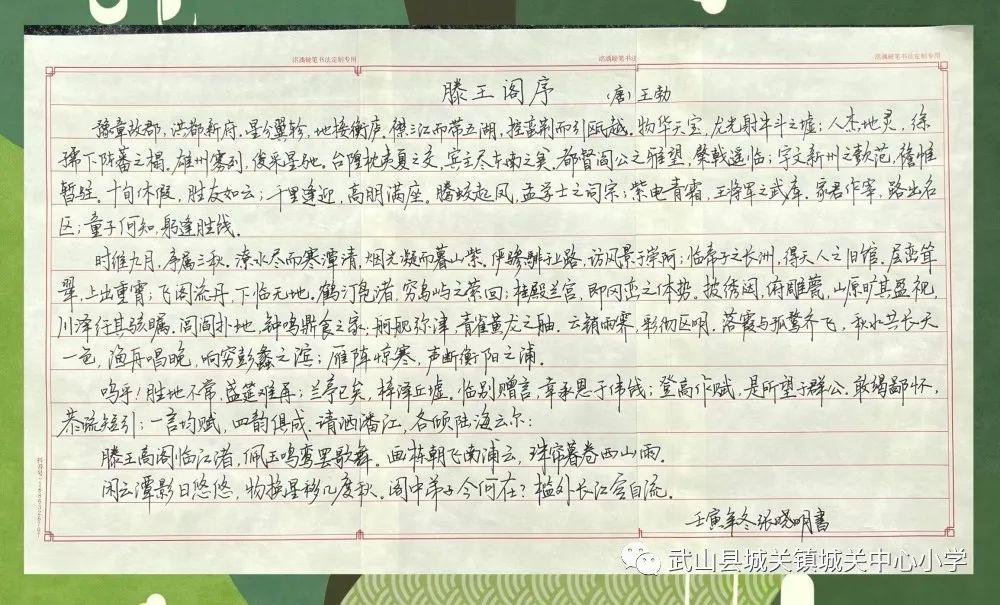 洺满硬笔书法定制专用 洺满硬笔书法定制专用 洺满硬笔书法定制专用
滕王阁序 （唐）王勃
豫章故郡，洪都新府。星分翼轸，地接衡庐。襟三江而带五湖，控蛮荆而引瓯越。物华天宝，龙光射牛斗之墟；人杰地灵，徐
孺下陈蕃之榻。雄州雾列，俊采星驰。台隍枕夷夏之交，宾主尽东南之美。都督阎公之雅望，棨戟遥临；宇文新州之懿范，襜帷
暂驻。十旬休假，胜友如云；千里逢迎，高朋满座。腾蛟起凤，孟学士之词宗；紫电青霜，王将军之武库。家君作宰，路出名
区；童子何知，躬逢胜饯。
时维九月，序属三秋。潦水尽而寒潭清，烟光凝而暮山紫。俨骖騑于上路，访风景于崇阿；临帝子之长洲，得天人之旧馆。层峦耸
翠，上出重霄；飞阁流丹，下临无地。鹤汀凫渚，穷岛屿之萦回；桂殿兰宫，即冈峦之体势。披绣闼，俯雕甍，山原旷其盈视，
川泽纡其骇瞩。闾阎扑地，钟鸣鼎食之家；舸舰弥津，青雀黄龙之舳。云销雨霁，彩彻区明。落霞与孤鹜齐飞，秋水共长天
一色。渔舟唱晚，响穷彭蠡之滨；雁阵惊寒，声断衡阳之浦。
呜乎！胜地不常，盛筵难再；兰亭已矣，梓泽丘墟。临别赠言，幸承恩于伟饯；登高作赋，是所望于群公。敢竭鄙怀，
恭疏短引；一言均赋，四韵俱成。请洒潘江，各倾陆海云尔：
滕王高阁临江渚，佩玉鸣鸾罢歌舞。画栋朝飞南浦云，珠帘暮卷西山雨。
闲云潭影日悠悠，物换星移几度秋。阁中帝子今何在？槛外长江空自流。
壬寅年冬张晓明书
武山县城关镇城关中心小学